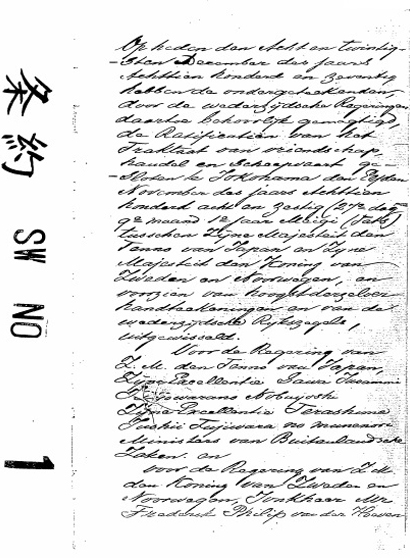 条約 SW NO 1
Op heden den Acht en twintig-
-sten December des jaars
Achttien honderd en zeventig
hebben de ondergeteekenden,
door de wederzijdsche Regeringen
daartoe behoorlijk gemagtigd,
de Ratificatien van het
Traktaat van vriendschap,
handel en Scheepvaart ge-
-sloten te Yokohama den Elfden
November des jaars Achttien
honderd acht en zestig (27e dag
9e maand 1e jaar Meizi
tusschen Zijne Majesteit den
Tenno van Japan en Zijne
Majesteit den Koning van
Zweden en Noorwegen, en
voorzien van hoogstderzelver
handteekeningen en van de
wederzijdsche Rijkszegels,
uitgewisseld.
Voor de Regering van
Z. M. den Tenno van Japan,
Zijne Excellentie Sawa
Nobuyoshi
Zijne Excellentie Terashima
Fujiwara no munenori
Ministers van Buitenlandsche
Zaken. en
voor de Regering van Z. M.
den Koning van Zweden en
Noorwegen, Jonkheer Mr.
Frederik Philip van der Hoeven